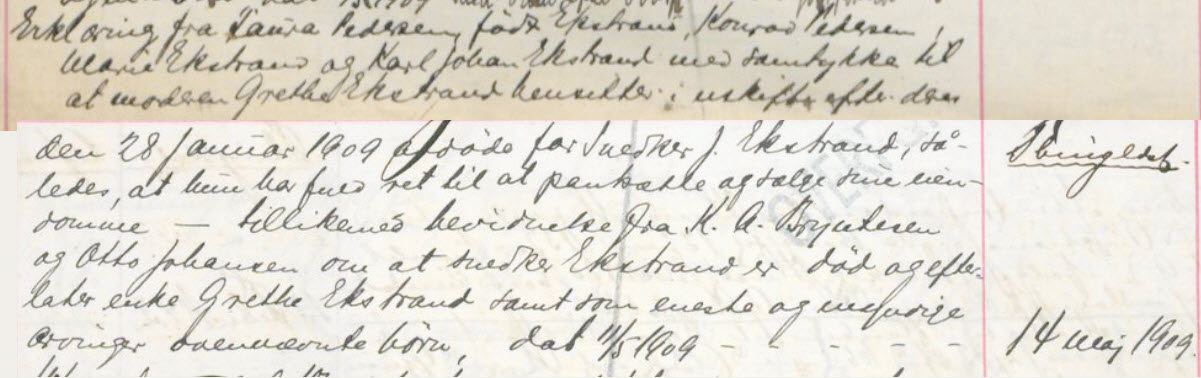 Erklæring fra Laura Pedersen, født Ekstrand, Konrad Pedersen,
Marie Ekstrand og Karl Johan Ekstrand med samtykke til
at moderen Grethe Ekstrand hensitter i uskiftet efter deres
den 28 Januar 1909 afdøde far Snedker J. Ekstrand, så-
ledes, at hun har fuld ret til at pantsætte og sælge sine eien-
domme — tillikemed bevidnelse fra K. A. Bryntesen
og Otto Johansen om at snedker Ekstrand er død og efter-
later enke Grethe Ekstrand samt som eneste og myndige
arvinger ovennævnte børn, dat 11/5 1909 - - - - -
14 maj 1909.